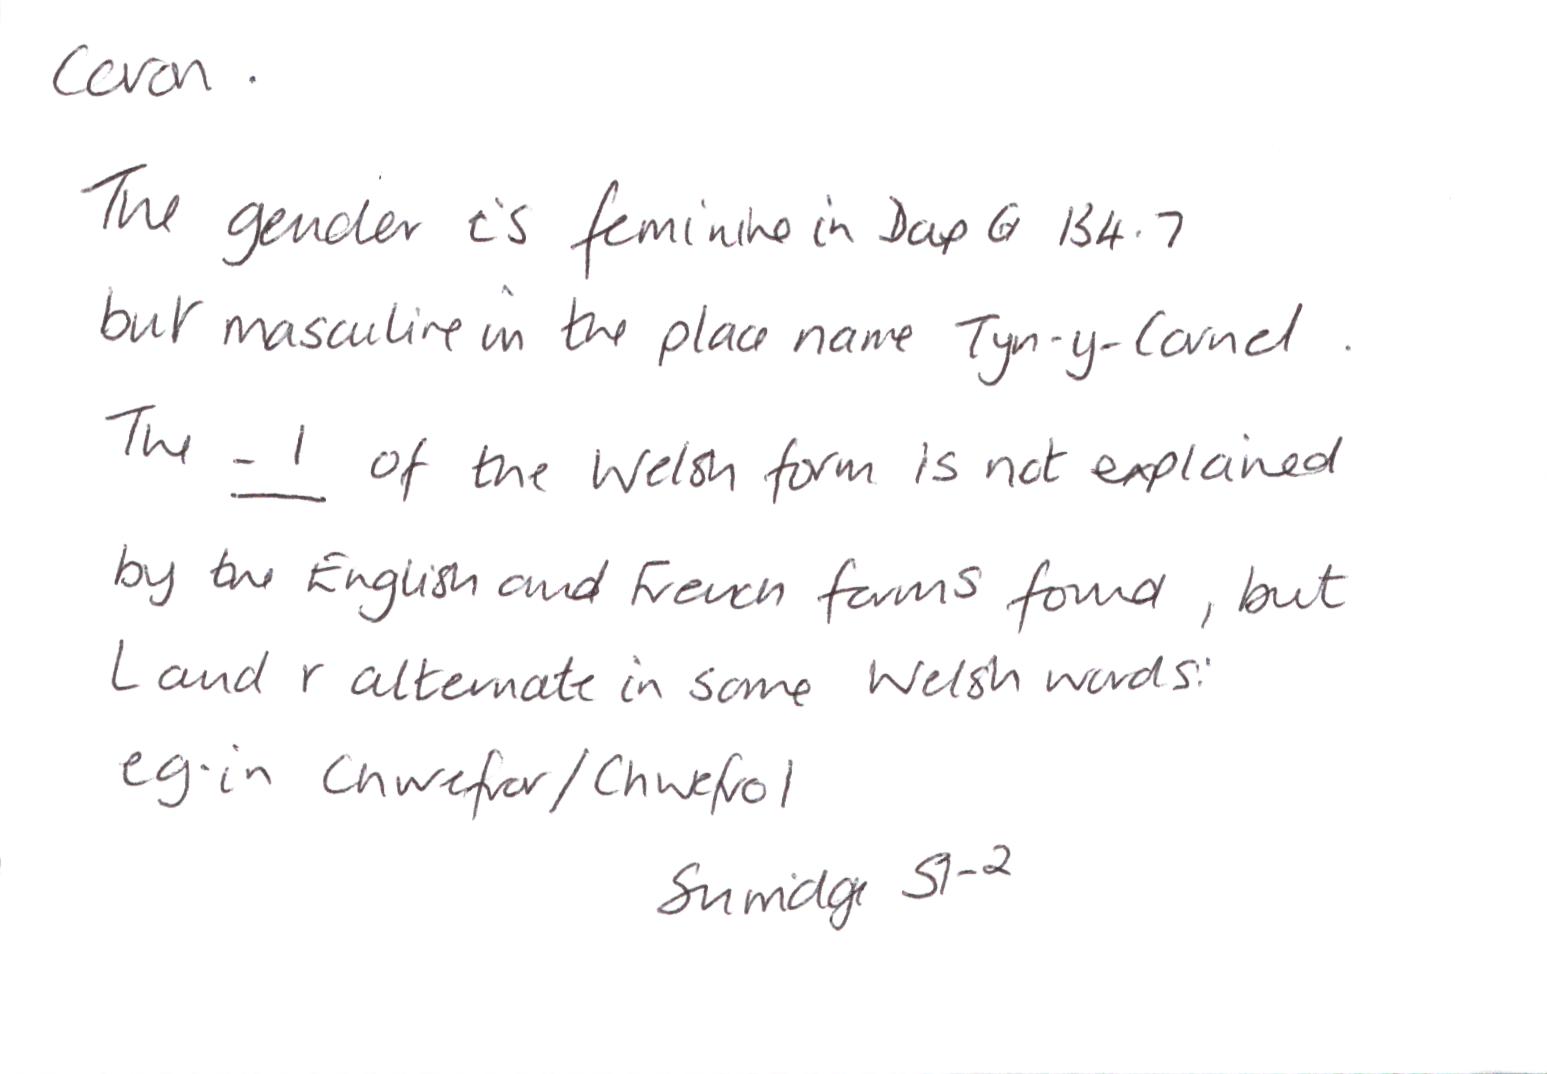 Caran.
The gender is feminine in Dap G 134.7
but masculine in the place name Tyn-y-Cornel.
The -l of the Welsh form is not explained
by the English and French forms found, but
L and r alternate in some Welsh words:
eg. in Chwefror/Chwefrol
51-2